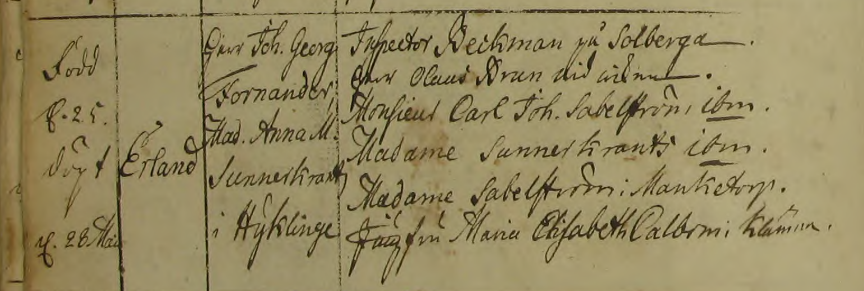 Född
d. 25.
döpt
d. 28 Maii
Erland
Herr Joh. Georg
Fornander,
Mad. Anna M.
Sunnerkrantz
i Hycklinge
Inspector Beckman på Solberga.
Herr Olaus Brun
Monsieur Carl Joh. Sabelström, ibm.
Madame Sunnerkrants ibm.
Madame Sabelström i Manketorp.
Jungfru Maria Elisabeth